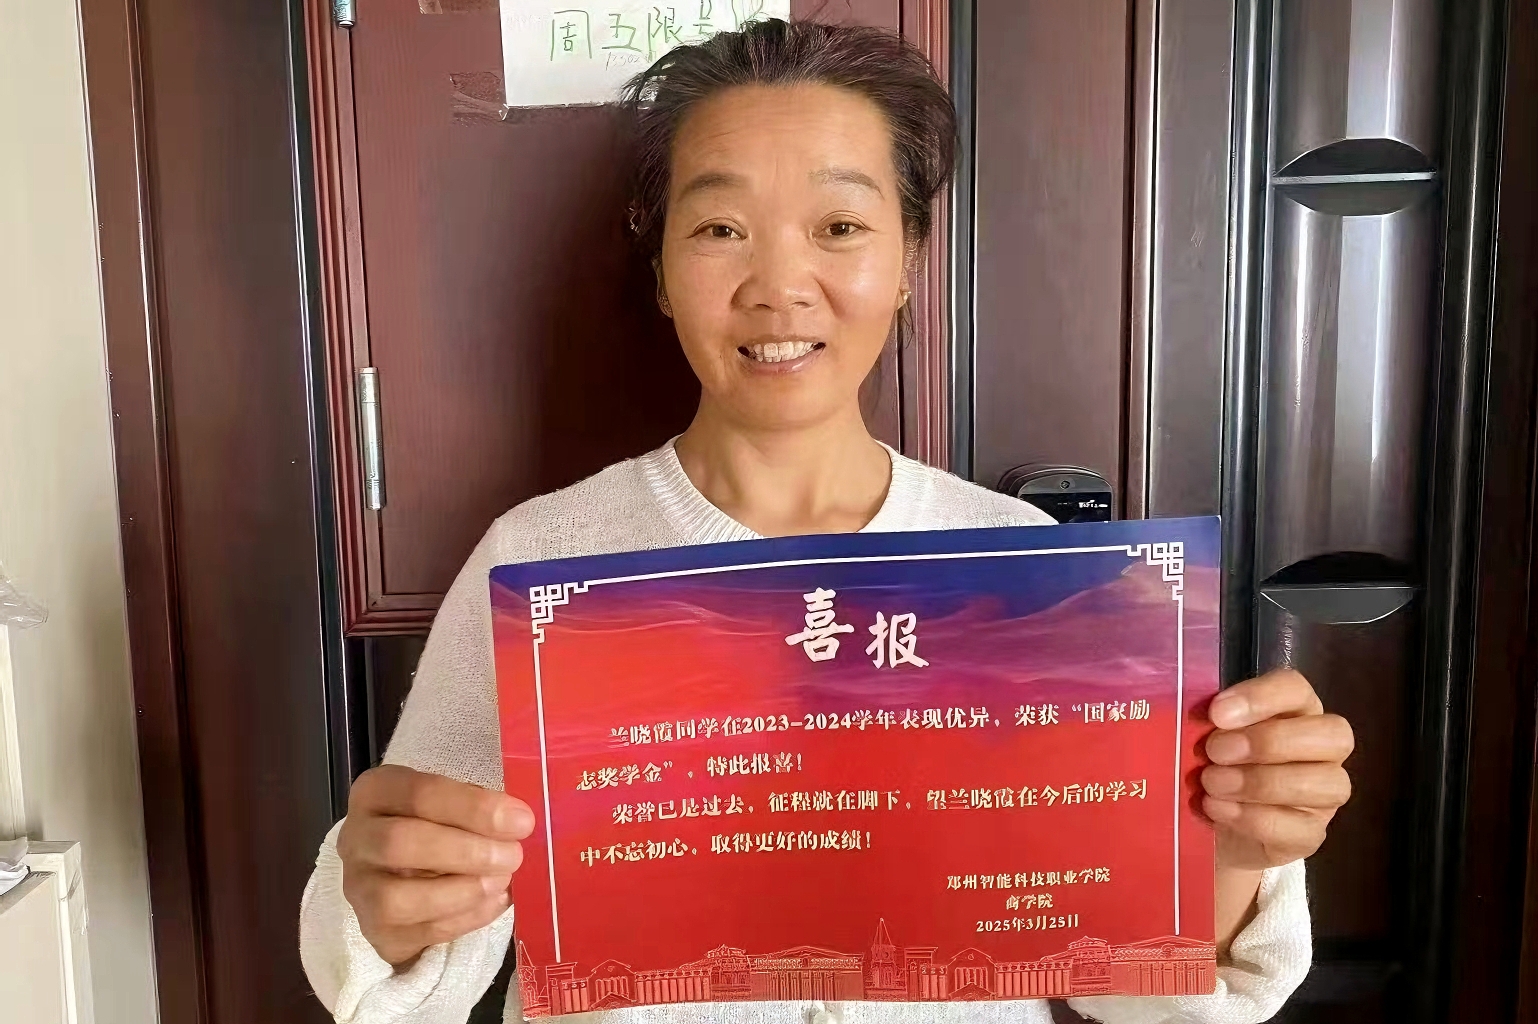 周五限号
喜报
兰晓霞同学在2023-2024学年表现优异，荣获“国家励
志奖学金”，特此报喜！
荣誉已是过去，征程就在脚下，望兰晓霞在今后的学习
中不忘初心，取得更好的成绩！
邓州智能科技职业学院
商学院
2025年3月25日